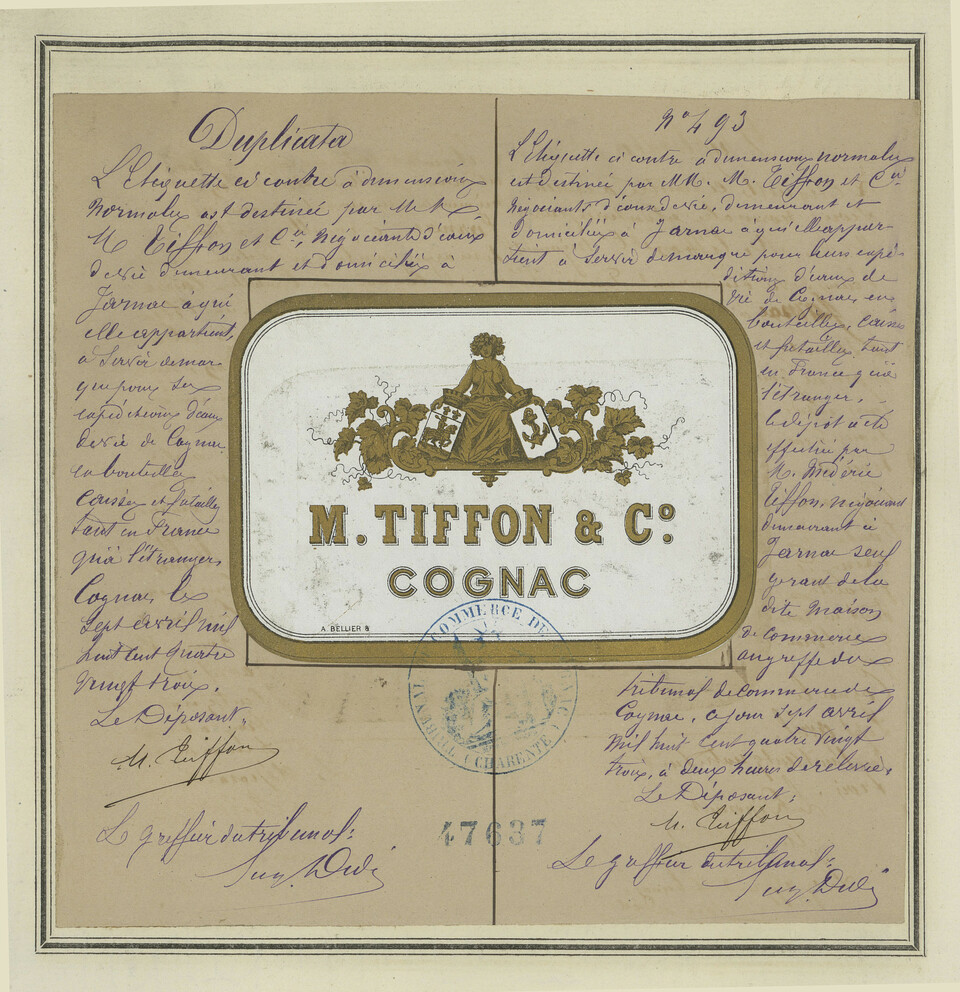 Duplicata
L'Etiquette ci contre à dimensions
normales est destinée par MM.
M. Tiffon et Cie, Négociants d'eaux
de vie demeurant et domiciliés à
Jarnac à qui
elle appartient,
à servir de mar-
que pour ses
expéditions d'eaux
de vie de Cognac
en bouteilles
caisses et futailles
tant en France
qu'à l'étranger,
Cognac, le
sept avril mil
huit cent quatre
vingt trois.
Le Déposant:
M. Tiffon
Le greffier du tribunal:
No 493
L'Etiquette ci contre à dimensions normales
est destinée par MM. M. Tiffon et Cie
Négociants d'eaux de vie, demeurant et
domiciliés à Jarnac à qui elle appar-
tient à servir de marque pour leurs expé-
ditions d'eaux de
vie de Cognac en
bouteilles, caisses
et futailles, tant
en France qu'à
l'étranger,
le dépôt a été
effectué par
M. Médéric
Tiffon, négociant
demeurant à
Jarnac seul
gérant de la
dite maison
de commerce
au greffe du
tribunal de commerce de
Cognac, ce jour sept avril
mil huit cent quatre vingt
trois, à deux heures de relevée.
Le Déposant:
M. Tiffon
Le greffier du tribunal:
M. TIFFON & Co.
COGNAC
A. BELLIER &
TRIBUNAL COMMERCE DE
(CHARENTE)
47637